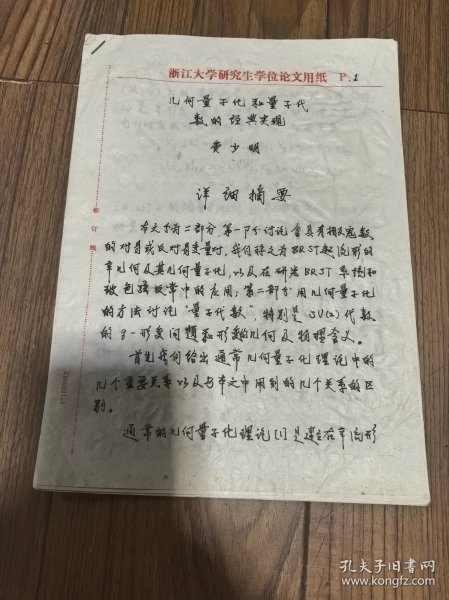 浙江大学研究生学位论文用纸 P.1
几何量子化和量子代
数的经典实现
费少明
详细摘要
本文分为二部分,第一部分讨论含具有相反宗数
的对易或反对易变量时,我们称之为BRST超流形的
辛几何及其几何量子化,以及在研究BRST系统和
玻色弦反常中的应用;第二部分用几何量子化
的方法讨论"量子代数",特别是SU(2)代数
的q-形变问题和形变几何及物理含义。
首先我们给出通常几何量子化理论中的
几个重要关系以及与本文中用到的几个关系的区
别。
通常的几何量子化理论[1]是建立在辛流形
装订线
孔夫子旧书网
www.kongfz.com